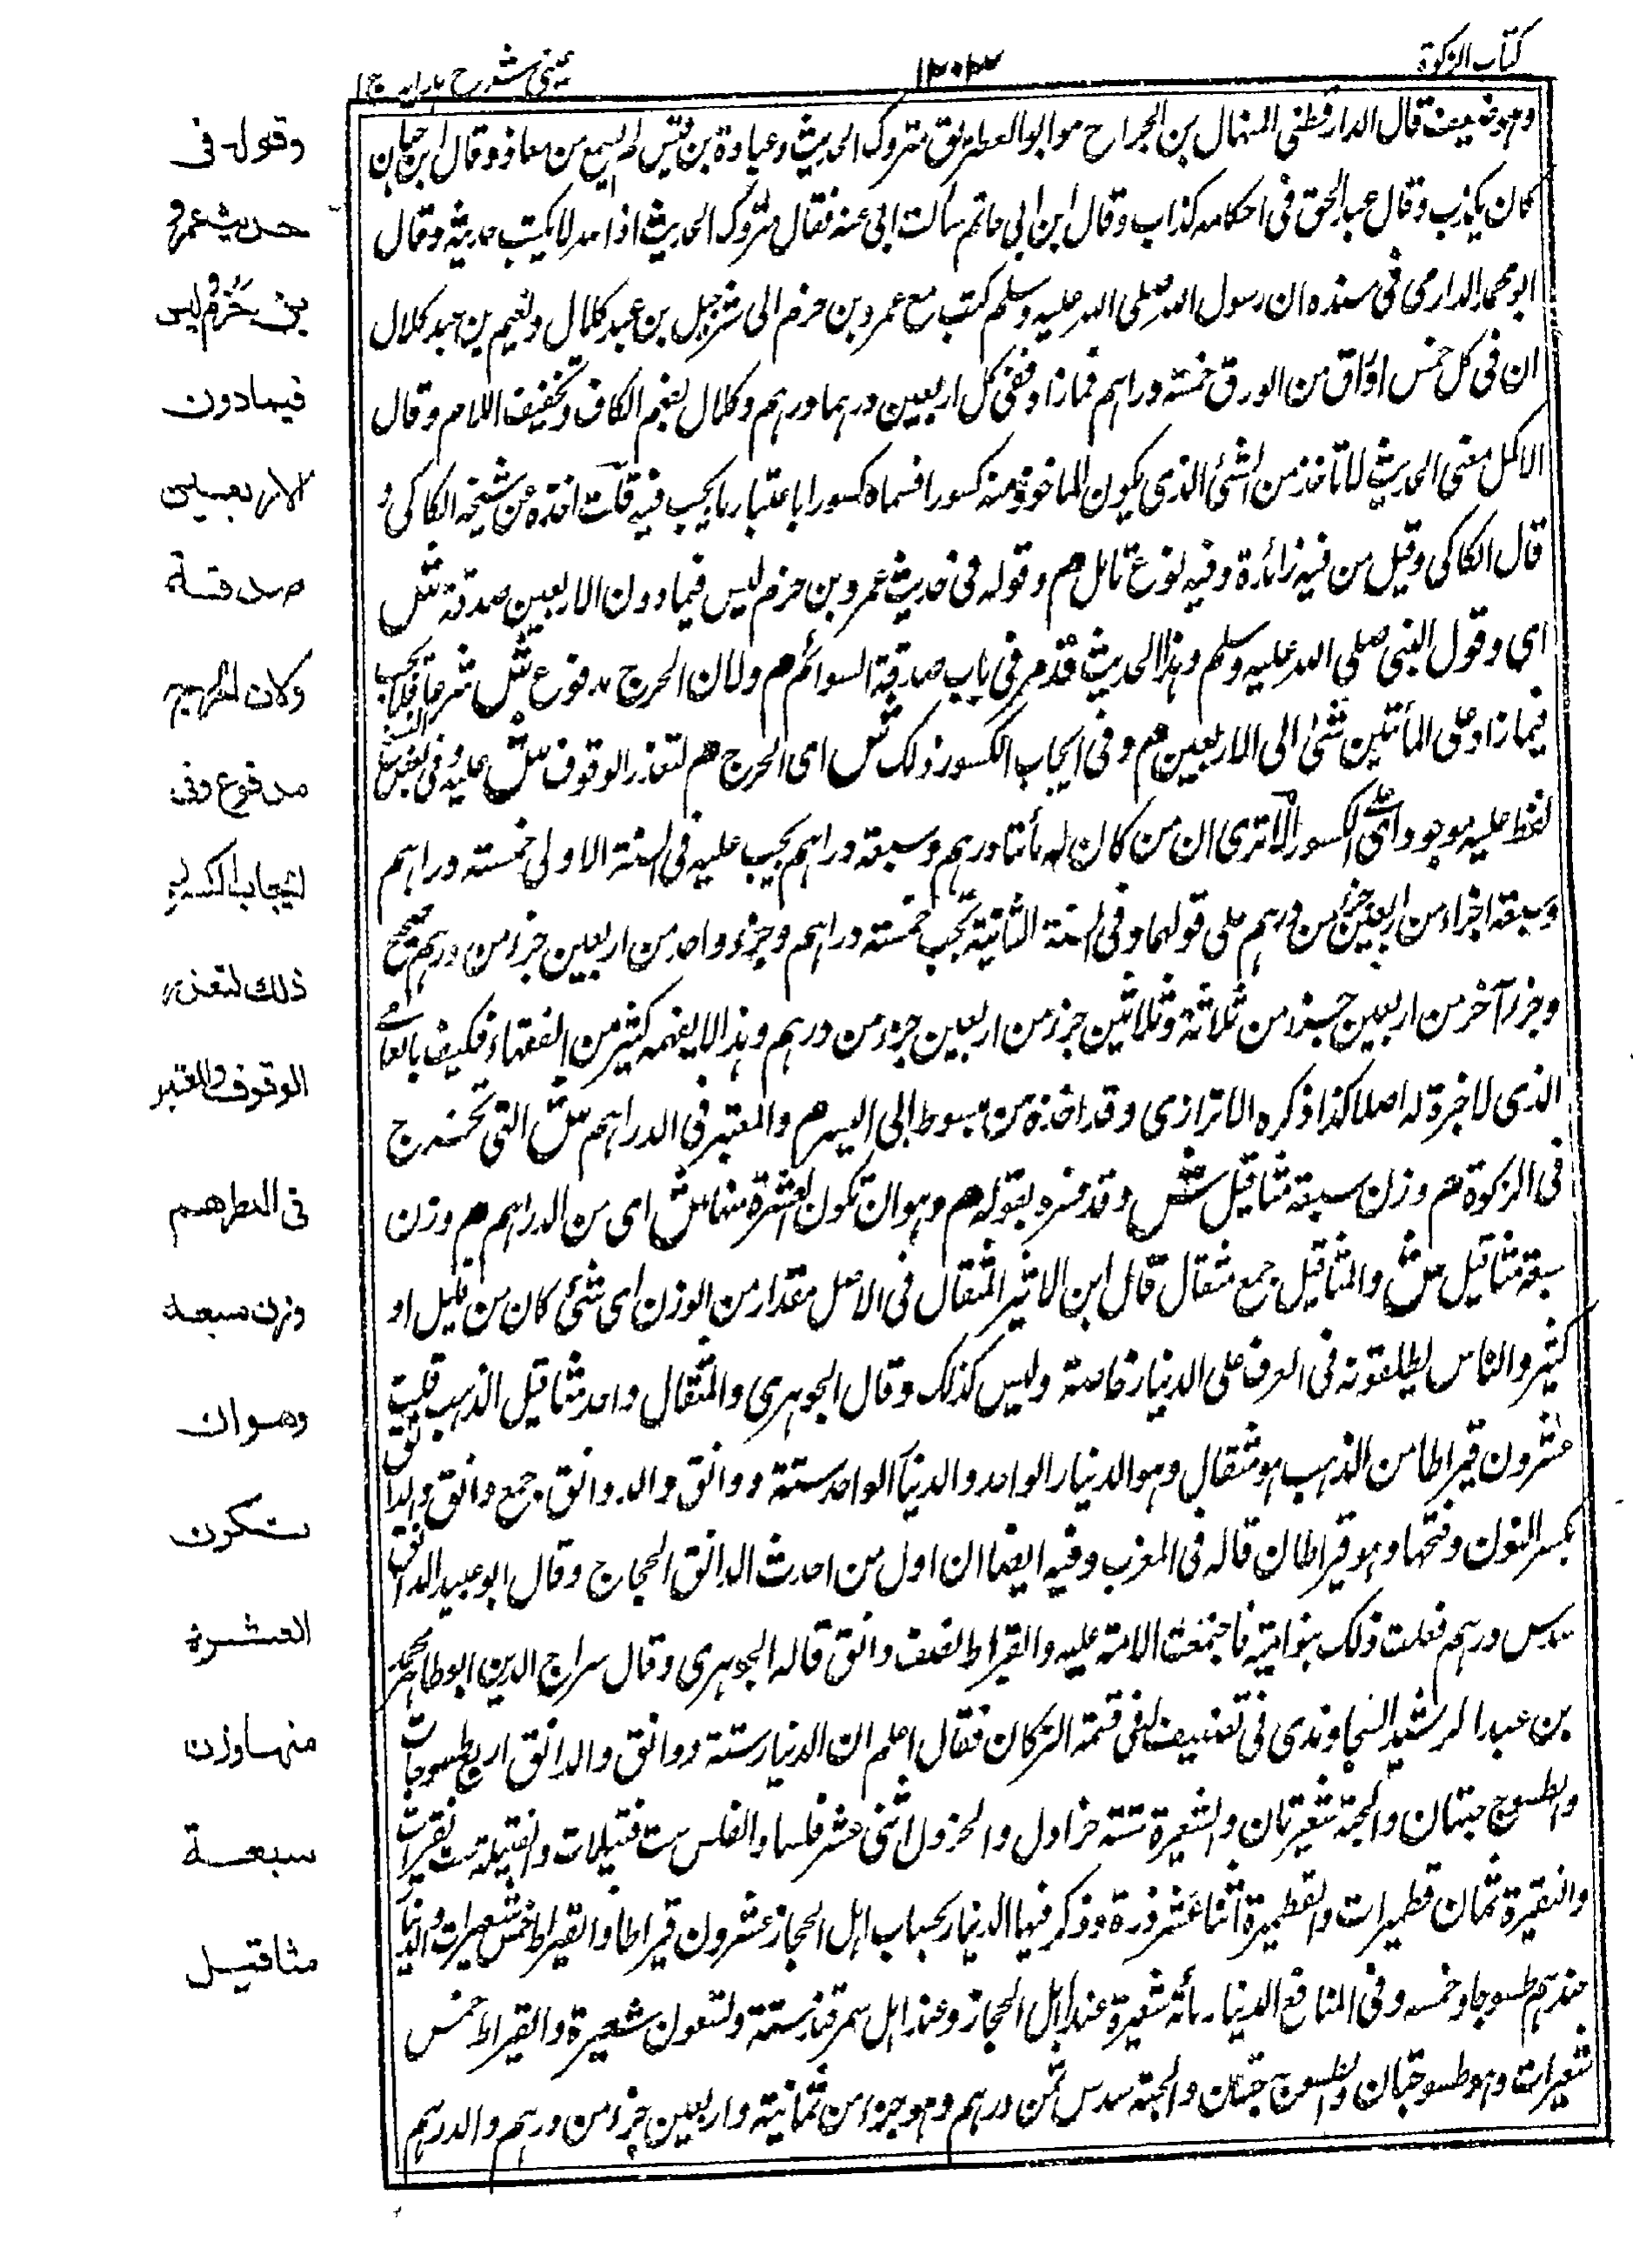 كتاب الزكوة
١٢٠٣
عينى شرح هدايه ج ١
وهو ضعيف قال الدارقطنى المنهال بن الجراح هو ابو العطوف متروك الحديث وعبادة بن نسى لم يسمع من معاذ وقال ابن حبان
كان يكذب وقال عبد الحق فى احكامه كذاب وقال ابن ابى حاتم سألت ابى عنه فقال متروك الحديث لا يكتب حديثه وقال
ابو محمد الدارمى فى مسنده ان رسول الله صلى الله عليه وسلم كتب مع عمرو بن حزم الى شرحبيل بن عبد كلال ونعيم بن عبد كلال
ان فى كل خمس اواق من الورق خمسة دراهم فما زاد ففى كل اربعين درهما درهم وكلال بضم الكاف وتخفيف اللام وقال
الاكمل معنى الحديث لا تاخذ من الشئ الذى يكون الماخوذ منه كسورا فسماه كسورا باعتبار ما يجب فيه قلت اخذه عن شيخه الكاكى و
قال الكاكى وقيل من فيه زائدة وفيه نوع تامل م وقوله فى حديث عمرو بن حزم ليس فيما دون الاربعين صدقة ش
اى وقول النبى صلى الله عليه وسلم وهذا الحديث قد مر فى باب صدقة السوائم م ولان الحرج مدفوع ش شرعا فلا يجب
فيما زاد على المأتين شئ الى الاربعين م وفى ايجاب الكسور ذلك ش اى الحرج م لتعذر الوقوف ش عليه وفى بعض النسخ
لفظ عليه موجود اى على الكسور الا ترى ان من كان له مأتا درهم وسبعة دراهم يجب عليه فى السنة الاولى خمسة دراهم
وسبعة اجزاء من اربعين جزء من درهم على قولهما وفى السنة الثانية يجب خمسة دراهم وجزء واحد من اربعين جزء من درهم صحيح
وجزء آخر من اربعين جزء من ثلاثة وثلاثين جزء من اربعين جزء من درهم وهذا لا يفهمه كثير من الفقهاء فكيف بالعامى
الذى لا خبرة له اصلا كذا ذكره الاترازى وقد اخذه من مبسوط ابى اليسر م والمعتبر فى الدراهم ش التى تخرج
فى الزكوة م وزن سبعة مثاقيل ش وقد فسره بقوله م وهو ان تكون العشرة منها ش اى من الدراهم م وزن
سبعة مثاقيل ش والمثاقيل جمع مثقال قال ابن الاثير المثقال فى الاصل مقدار من الوزن اى شئ كان من قليل او
كثير والناس يطلقونه فى العرف على الدينار خاصة وليس كذلك وقال الجوهرى والمثقال واحد مثاقيل الذهب قلت
عشرون قيراطا من الذهب هو مثقال وهو الدينار الواحد والدينار الواحد ستة دوانق والدوانق جمع دانق والدانق
بكسر النون وفتحها وهو قيراطان قاله فى المغرب وفيه ايضا ان اول من احدث الدانق الحجاج وقال ابو عبيد الدانق
سدس درهم فعلت ذلك بنو امية فاجتمعت الامة عليه والقيراط نصف دانق قاله الجوهرى وقال سراج الدين ابو طاهر محمد
بن عبد الرشيد السجاوندى فى تصنيفه فى قسمة التركات فقال اعلم ان الدينار ستة دوانق والدانق اربع طسوجات
والطسوج حبتان والحبة شعيرتان والشعيرة ستة خرادل والخردل اثنى عشر فلسا والفلس ست فتيلات والفتيلة ست نقيرات
والنقيرة ثمان قطميرات والقطميرة اثنا عشر ذرة وذكر فيها الدينار بحساب اهل الحجاز عشرون قيراطا والقيراط خمس شعيرات والدينار
عندهم طسوجا وخمسه وفى المنافع الدينار مائة شعيرة عند اهل الحجاز وعند اهل سمرقند ستة وتسعون شعيرة والقيراط خمس
شعيرات وهو طسوجتان والطسوج حبتان والحبة سدس ثمن درهم وهو جزء من ثمانية واربعين جزء من درهم والدرهم
وقوله فى
حديث عمرو
بن حزم ليس
فيما دون
الاربعين
صدقة
ولان الحرج
مدفوع وفى
ايجاب الكسور
ذلك لتعذر
الوقوف والمعتبر
فى الدراهم
وزن سبعة
وهو ان
تكون
العشرة
منها وزن
سبعة
مثاقيل